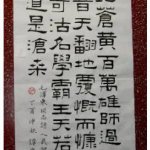 蒼黃百萬雄師過
昔天翻地覆慨而慷
可沽名學霸王天若
道是滄桑
毛澤東